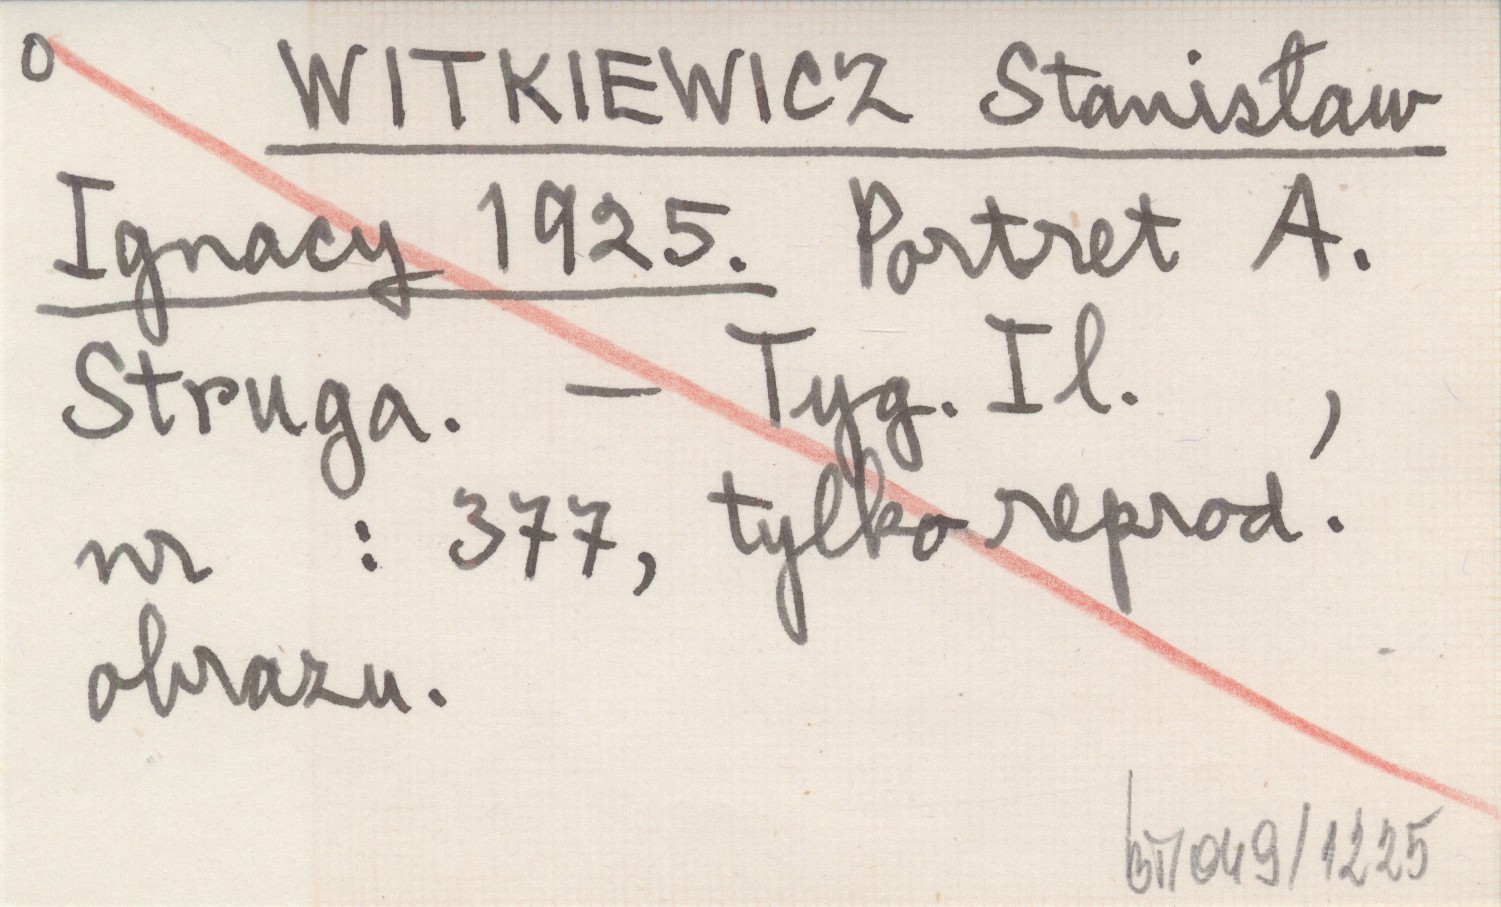 o WITKIEWICZ Stanisław
Ignacy 1925. Portret A.
Struga. — Tyg. Il. ,
nr : 377, tylko reprod.
obrazu.
049/1225